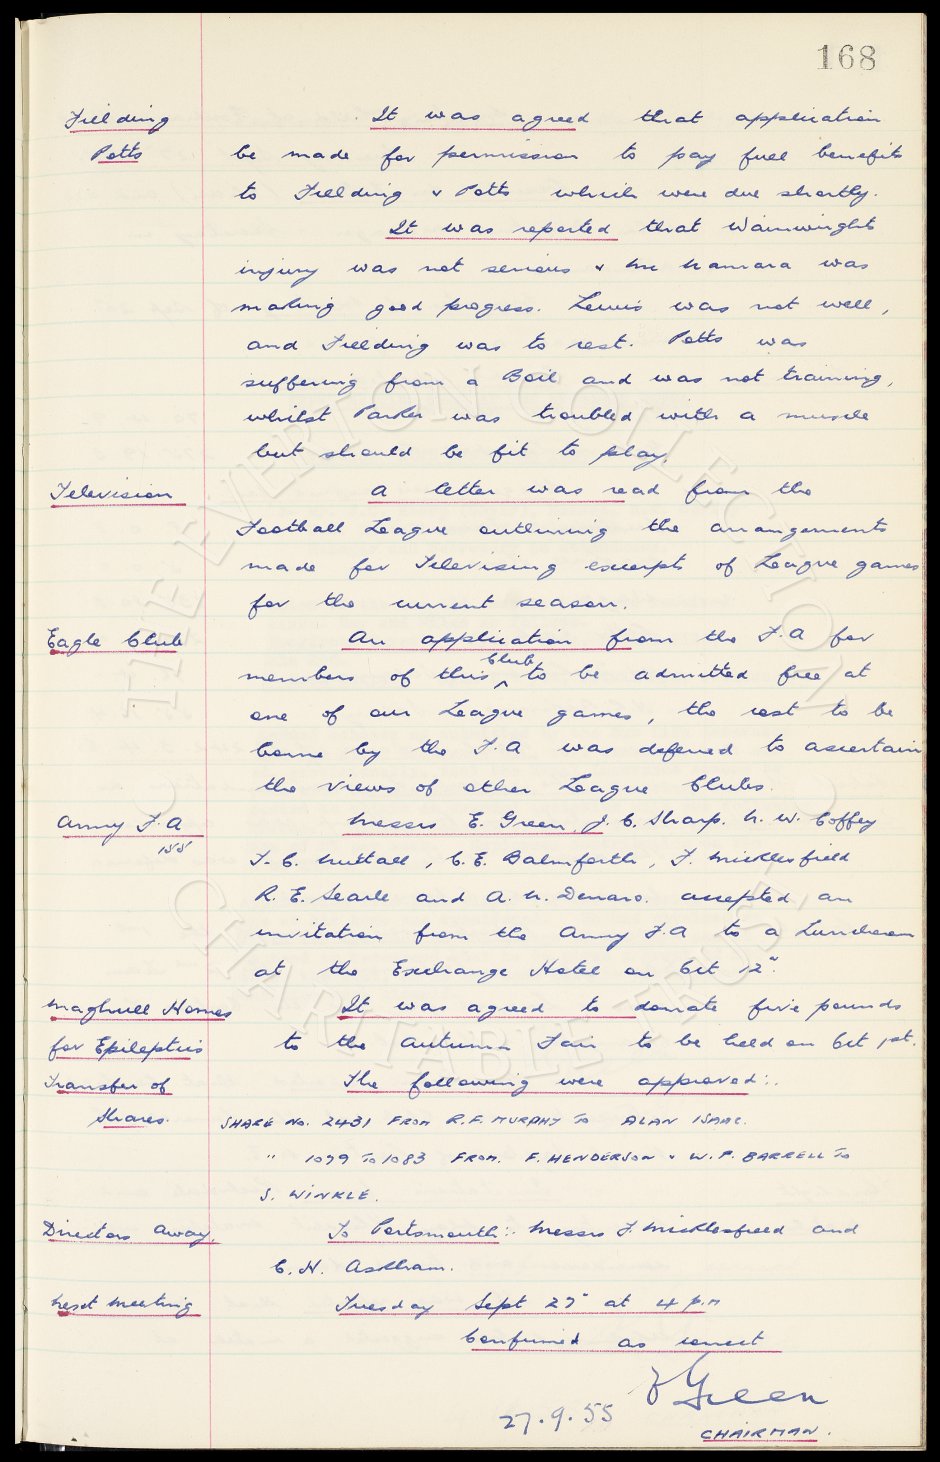 168
Fielding It was agreed that application
Potts be made for permission to pay full benefits
to Fielding & Potts which were due shortly.
It was reported that Wainwrights
injury was not serious & Mc Namara was
making good progress. Lewis was not well,
and Fielding was to rest. Potts was
suffering from a Boil and was not training,
whilst Parker was troubled with a muscle
but should be fit to play.
Television A letter was read from the
Football League outlining the arrangements
made for Televising excerpts of League games
for the current season.
Eagle Club An application from the F.A for
members of this Club to be admitted free at
one of our League games, the cost to be
borne by the F.A was deferred to ascertain
the views of other League Clubs.
Army F.A Messrs E. Green, J. C. Sharp. N. W. Coffey
155 T. C. Nuttall, C. E. Balmforth, F. Micklesfield
R. E. Searle and A. N. Denaro. accepted an
invitation from the Army F.A to a Luncheon
at the Exchange Hotel on Oct 12".
Maghull Homes It was agreed to donate five pounds
for Epileptics to the Autumn Fair to be held on Oct 1st.
Transfer of The following were approved:.
Shares. SHARE No. 2431 FROM R.F. MURPHY TO ALAN ISAAC.
" 1079 TO 1083 FROM. F. HENDERSON & W. P. BARRELL TO
S. WINKLE.
Directors Away. To Portsmouth:. Messrs F Micklesfield and
C. H. Askham.
Next Meeting Tuesday Sept 27" at 4 p.m
Confirmed as correct
E Green
27.9.55
CHAIRMAN.
THE EVERTON COLLECTION
CHARITABLE TRUST